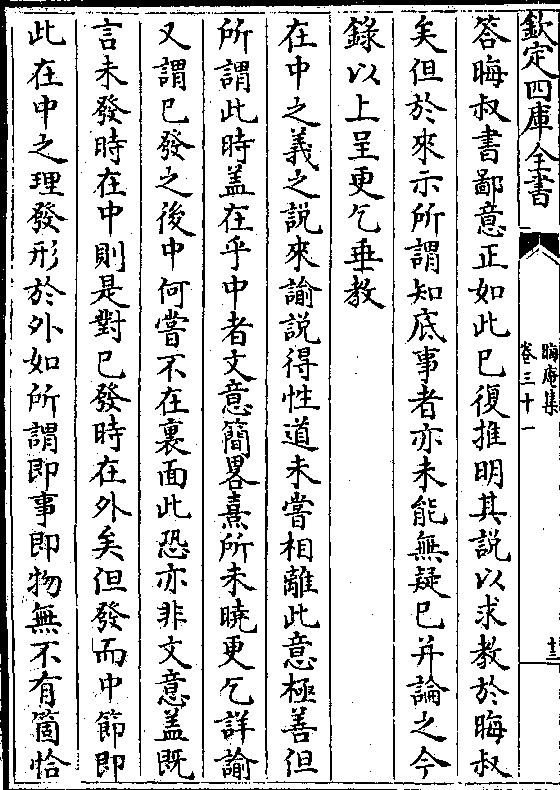 欽定四庫全書
晦庵集
卷三十一
十三
答晦叔書鄙意正如此已復推明其説以求教於晦叔
矣但於來示所謂知底事者亦未能無疑已并論之今
錄以上呈更乞垂教
在中之義之説來諭説得性道未嘗相離此意極善但
所謂此時盖在乎中者文意簡畧熹所未曉更乞詳諭
又謂已發之後中何嘗不在裏面此恐亦非文意盖既
言未發時在中則是對已發時在外矣但發而中節即
此在中之理發形於外如所謂即事即物無不有箇恰